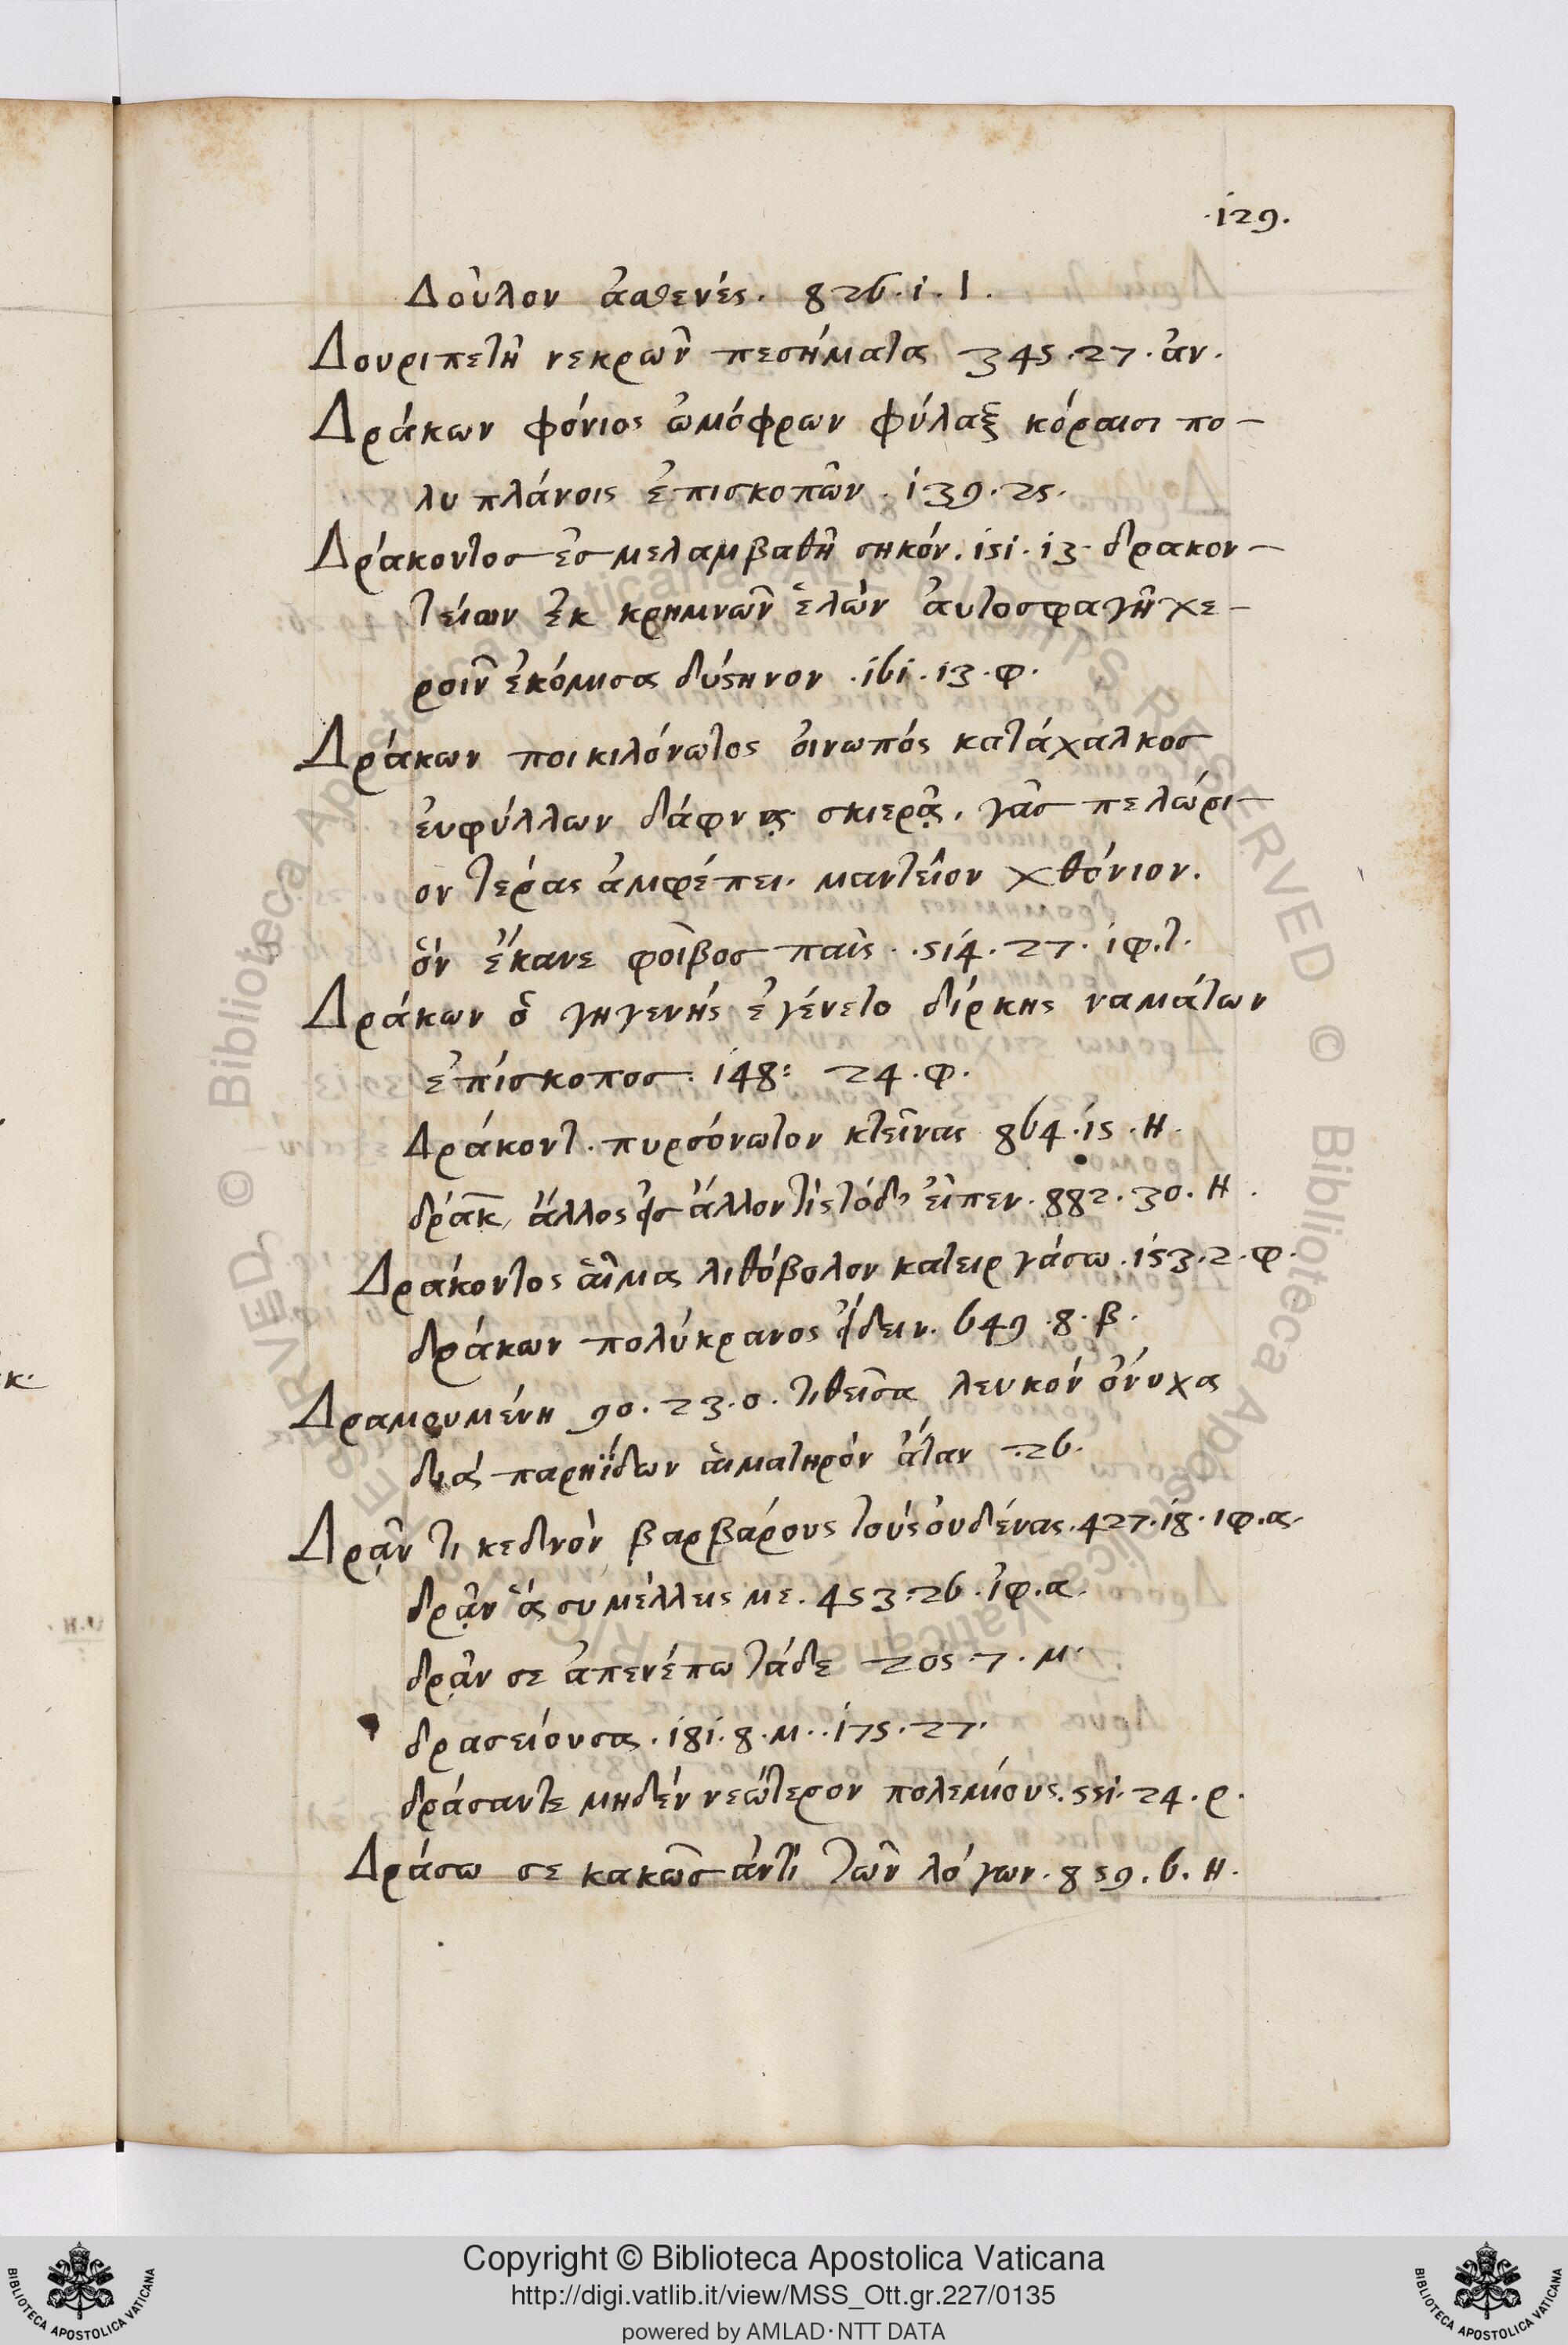 .129.
Δοῦλον ἀσθενές. 826.1.Ι.
Δουριπετῆ νεκρῶν πεσήματα 345.27.ἀν.
Δράκων φόνιος ὠμόφρων φύλαξ κόραισι πο-
λυ πλάνοις ἐπισκοπῶν. 139.25.
Δράκοντος ἐς μελαμβαθῆ σηκόν. 151.13. δρακον-
τείων ἐκ κρημνῶν ἑλὼν αὐτοσφαγῆ χε-
ροῖν ἐκόμισα δύστηνον .161.13.φ.
Δράκων ποικιλόνωτος οἰνωπός κατάχαλκος
εὐφύλλων δάφνᾳ σκιερᾷ, γᾶς πελώρι-
ον τέρας ἀμφέπει. μαντεῖον χθόνιον.
ὅν ἔκανε φοῖβος παῖς. .514.27. ἰφ.τ.
Δράκων ὁ γηγενής ἐγένετο δίρκης ναμάτων
ἐπίσκοπος. 148: 24.φ.
Δράκοντ. πυρσόνωτον κτεῖνας 864.15.Η.
δράκ, ἄλλος πρὸς ἄλλον τίς τόδ' εἶπεν. 882.30.Η.
Δράκοντος αἷμα λιθόβολον κατειργάσω .153.2.φ.
δράκων πολύκρανος ἰδεῖν. 649.8.β.
Δραμουμένη 90.23.ο. τιθεῖσα λευκόν ὄνυχα
διά παρηΐδων αἱματηρόν ἄταν .26.
Δρᾷν τι κεδνὸν βαρβάρους τοὺς οὐδένας. 427.18.ιφ.α.
δρᾷν ἅ συ μέλλεις με. 453.26.ἰφ.α.
δρᾷν σε ἀπενέπω τάδε 205.7.Μ.
δρασείουσα. 181.8.Μ. .175.27.
δράσαντε μηδέν νεώτερον πολεμίους. 551.24.ρ.
Δράσω σε κακῶς ἀντί τῶν λόγων. 859.6.Η.
κ.
Copyright © Biblioteca Apostolica Vaticana
http://digi.vatlib.it/view/MSS_Ott.gr.227/0135
powered by AMLAD·NTT DATA
BIBLIOTECA APOSTOLICA VATICANA
BIBLIOTECA APOSTOLICA VATICANA